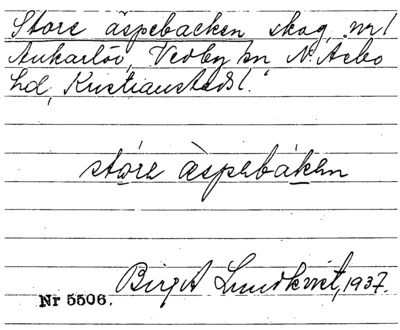 Store äspebacken skog, nr 1
Ankarlöv, Vedby sn N. Åsbo
hd, Kristianstads l.
stó̱re äspebàḵen
Birgit Lundkvist, 1937.
Nr 5506.